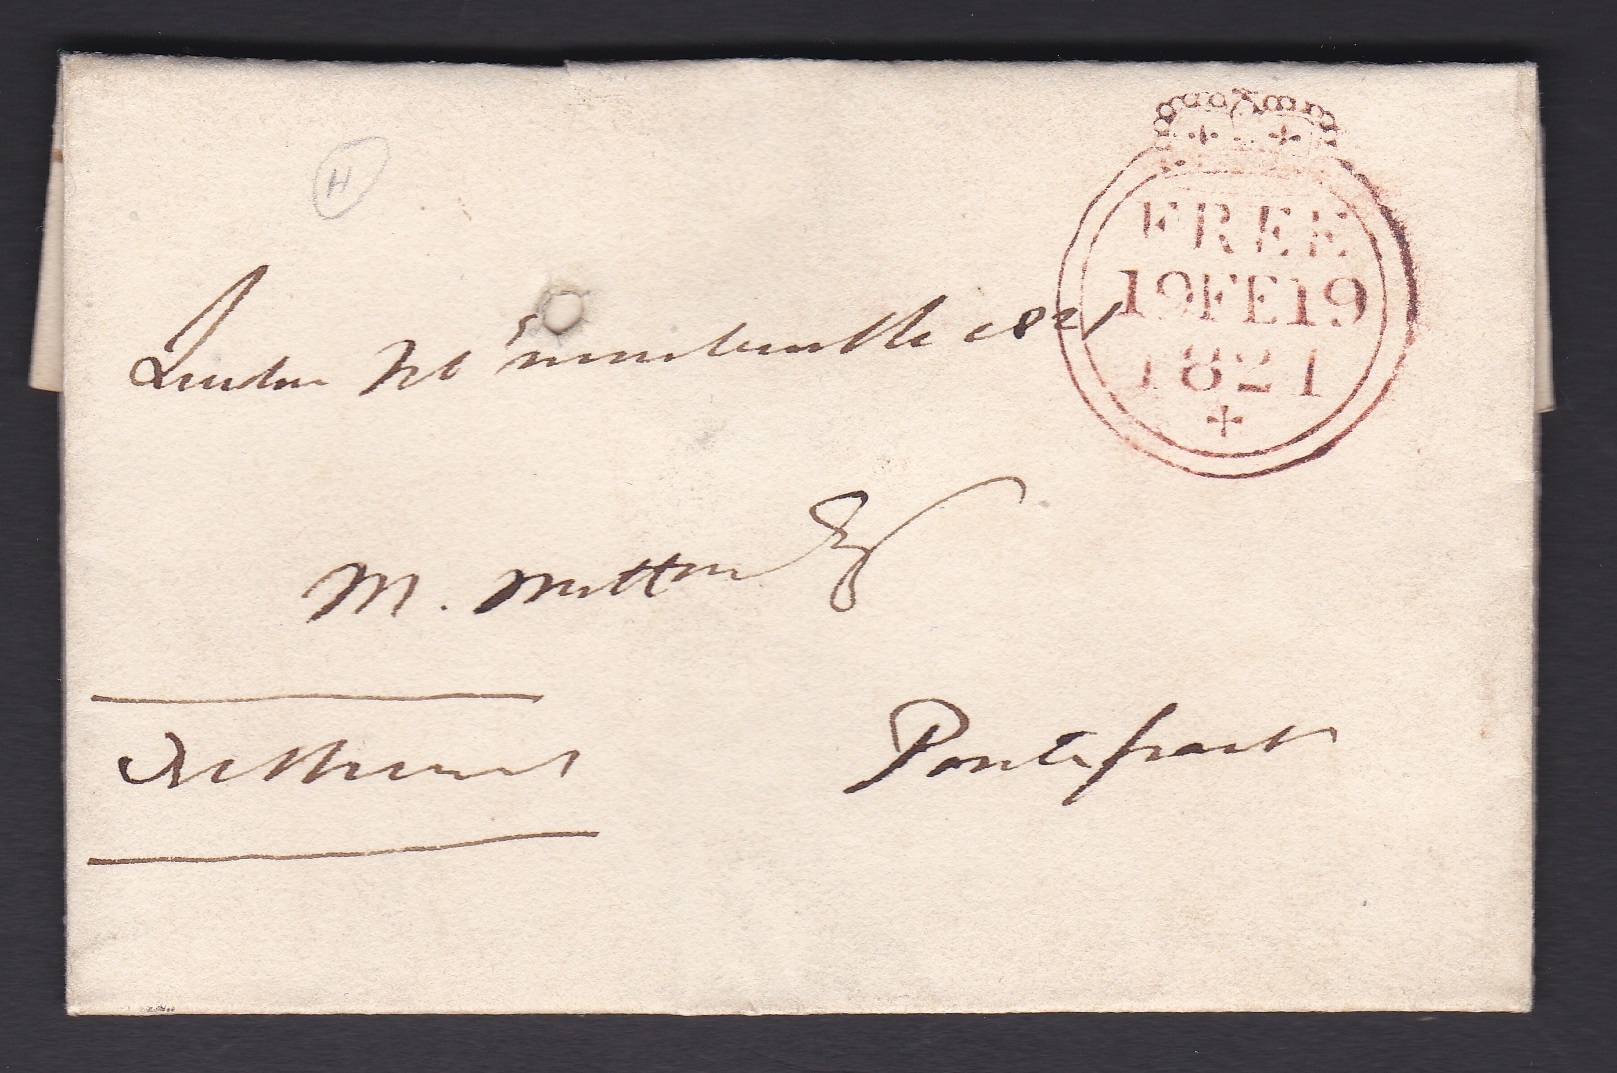 H
London Feb nineteenth 1821
FREE
19FE19
1821
M. Mitton Esq
Pontefract